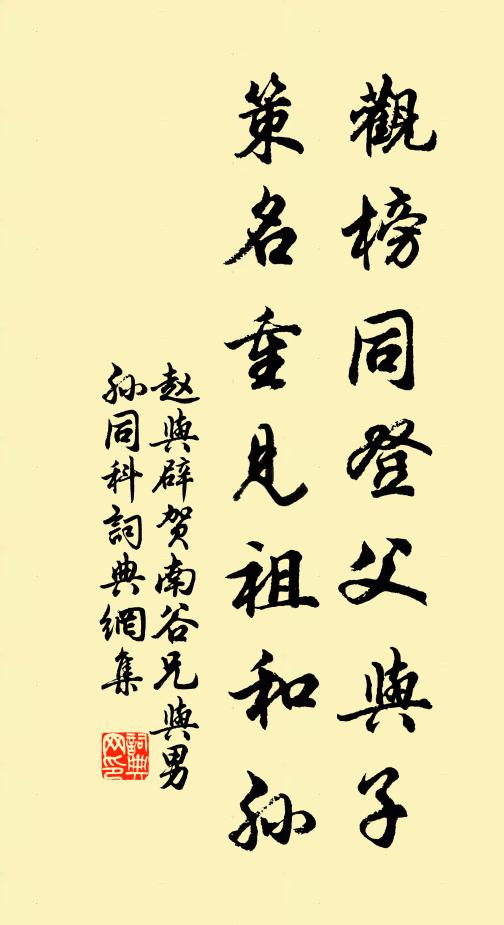 觀榜同登父與子
策名重見祖和孙
赵與辟贺南谷兄與男
孙同科詞典網集
詞典
网印